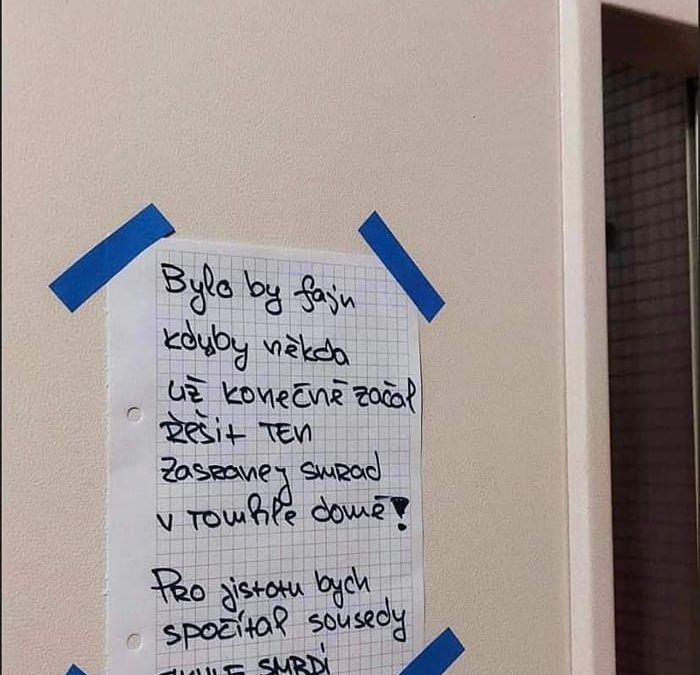 Bylo by fajn
kdyby někdo
už konečně začal
řešit TEN
zasranej smrad
v tomhle domě!
Pro jistotu bych
spočítal sousedy
SMRDÍ